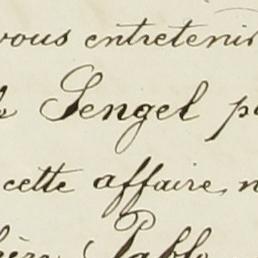 vous entretenir
Sengel
cette affaire,
Pablo